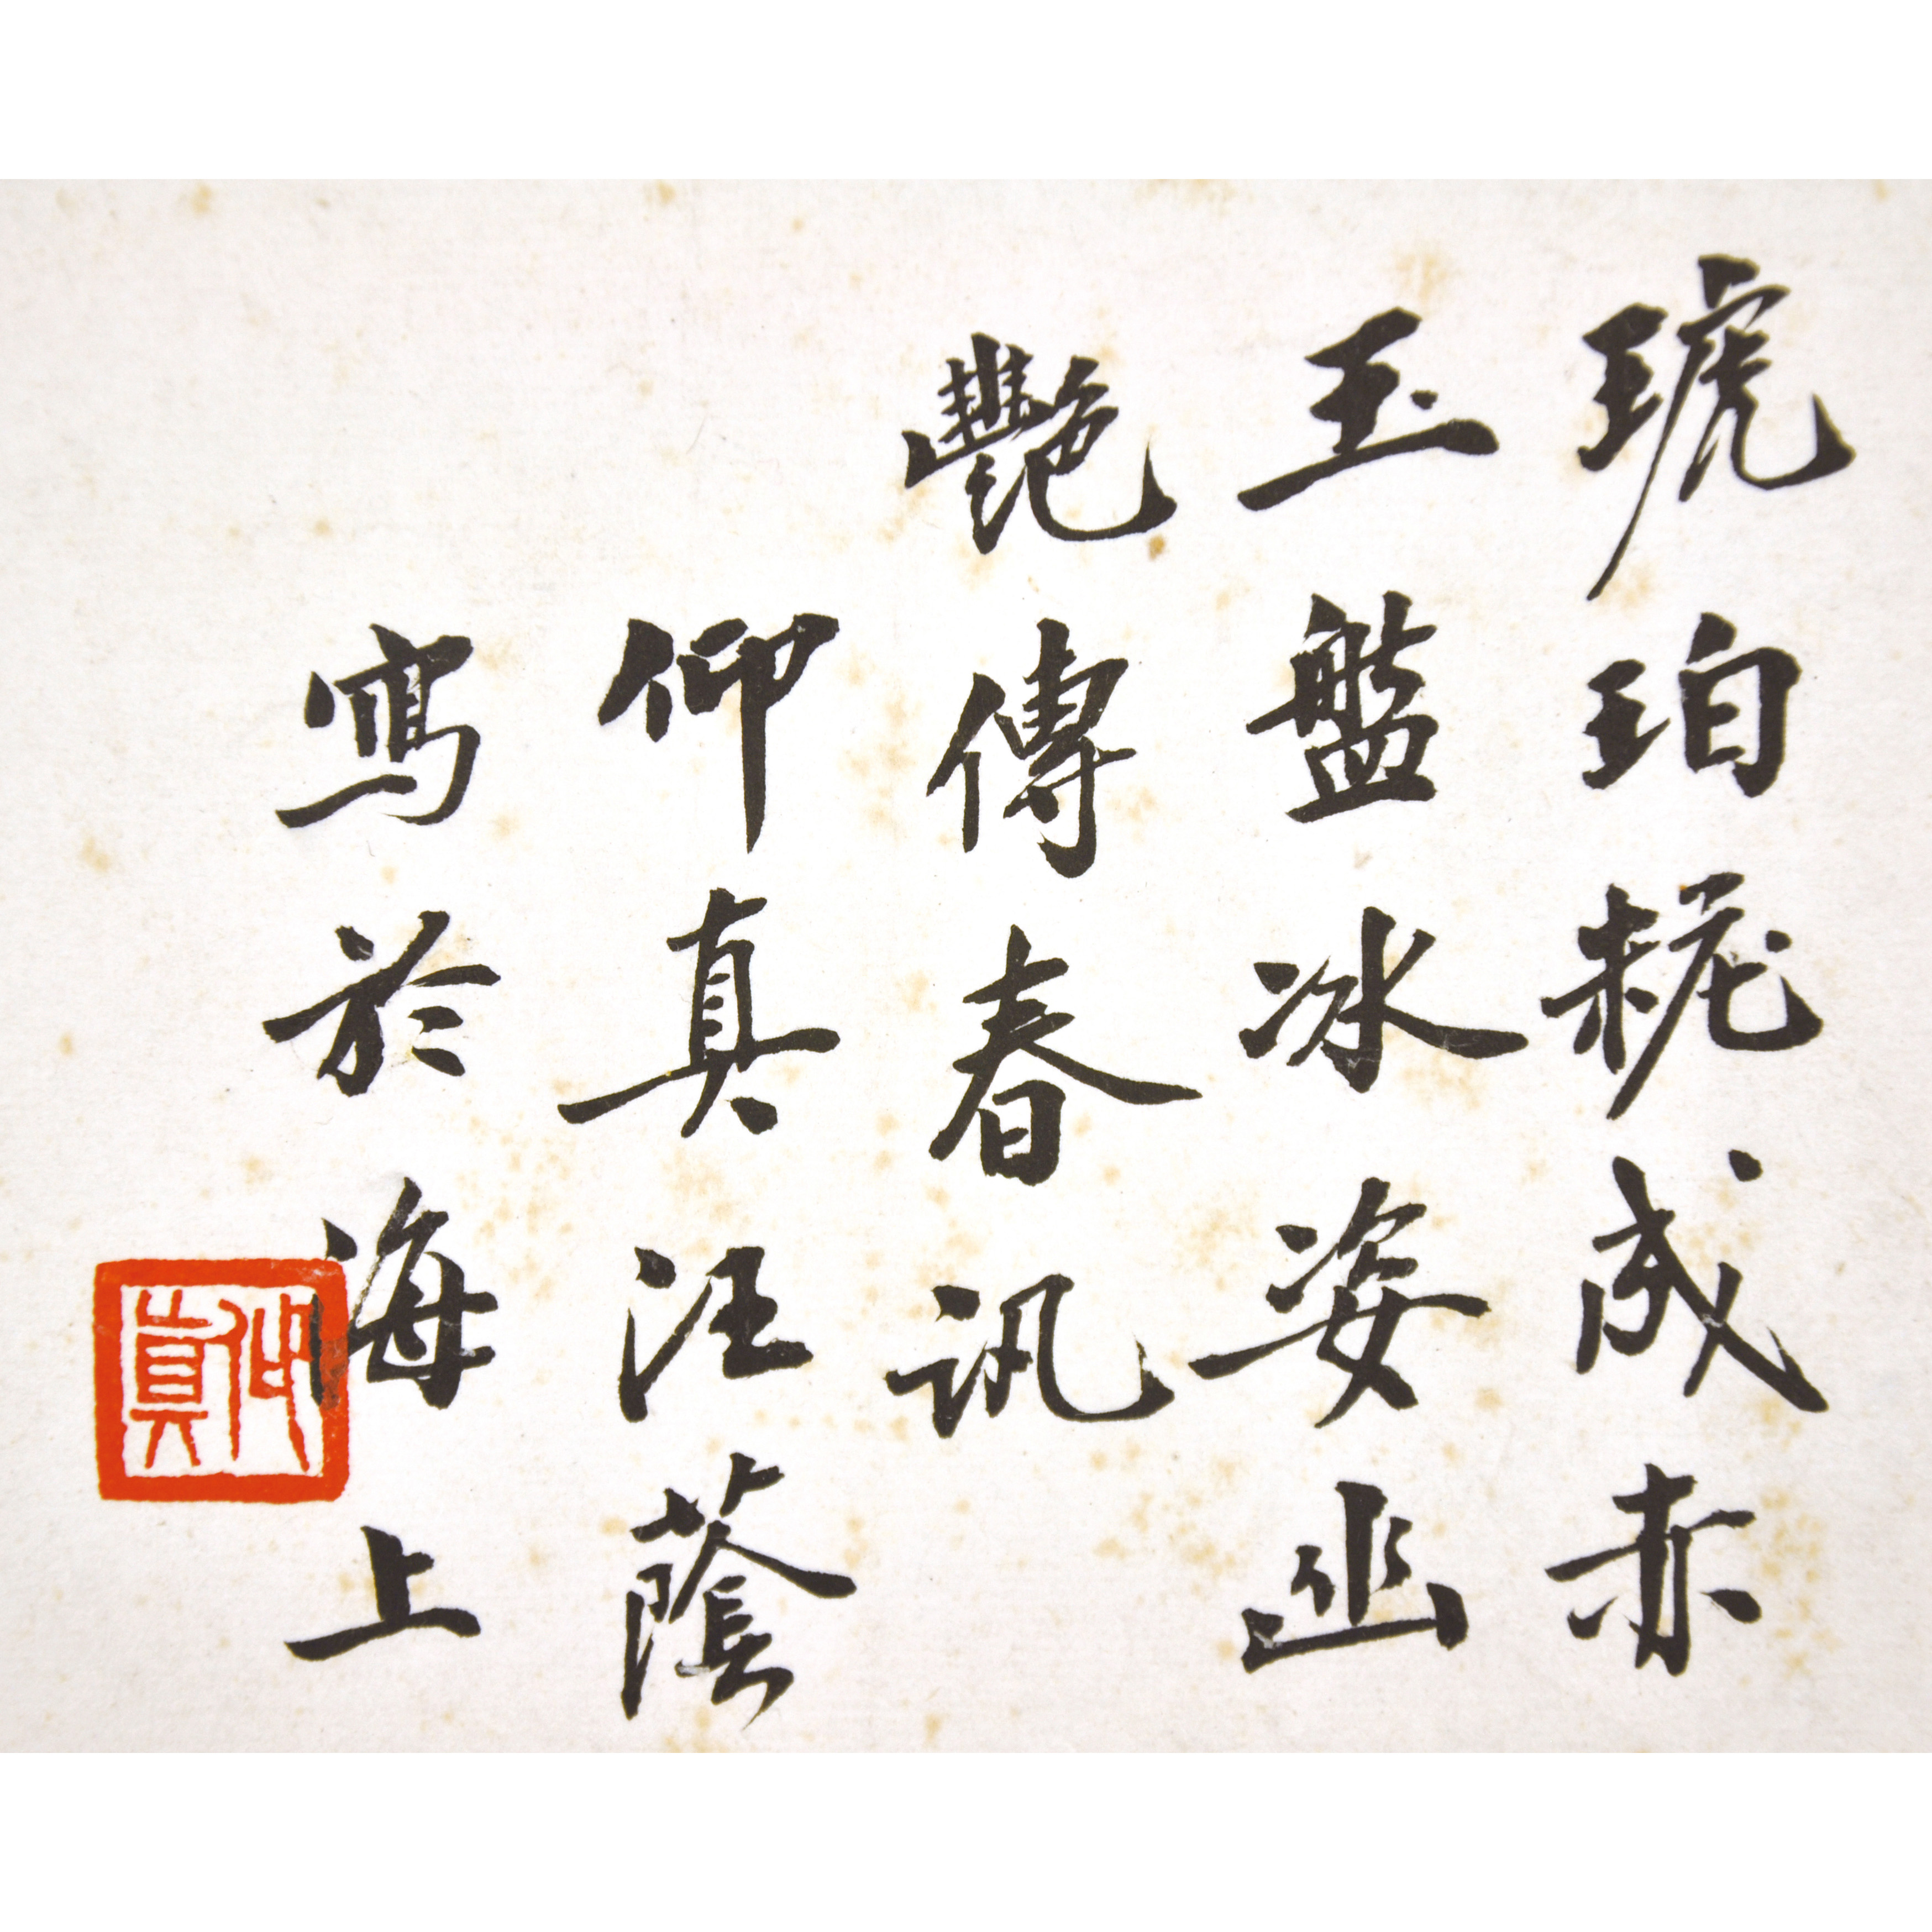 琥珀糚成赤
玉盤冰姿幽
艷傳春訊
仰真汪蔭
寫於海上
仰真